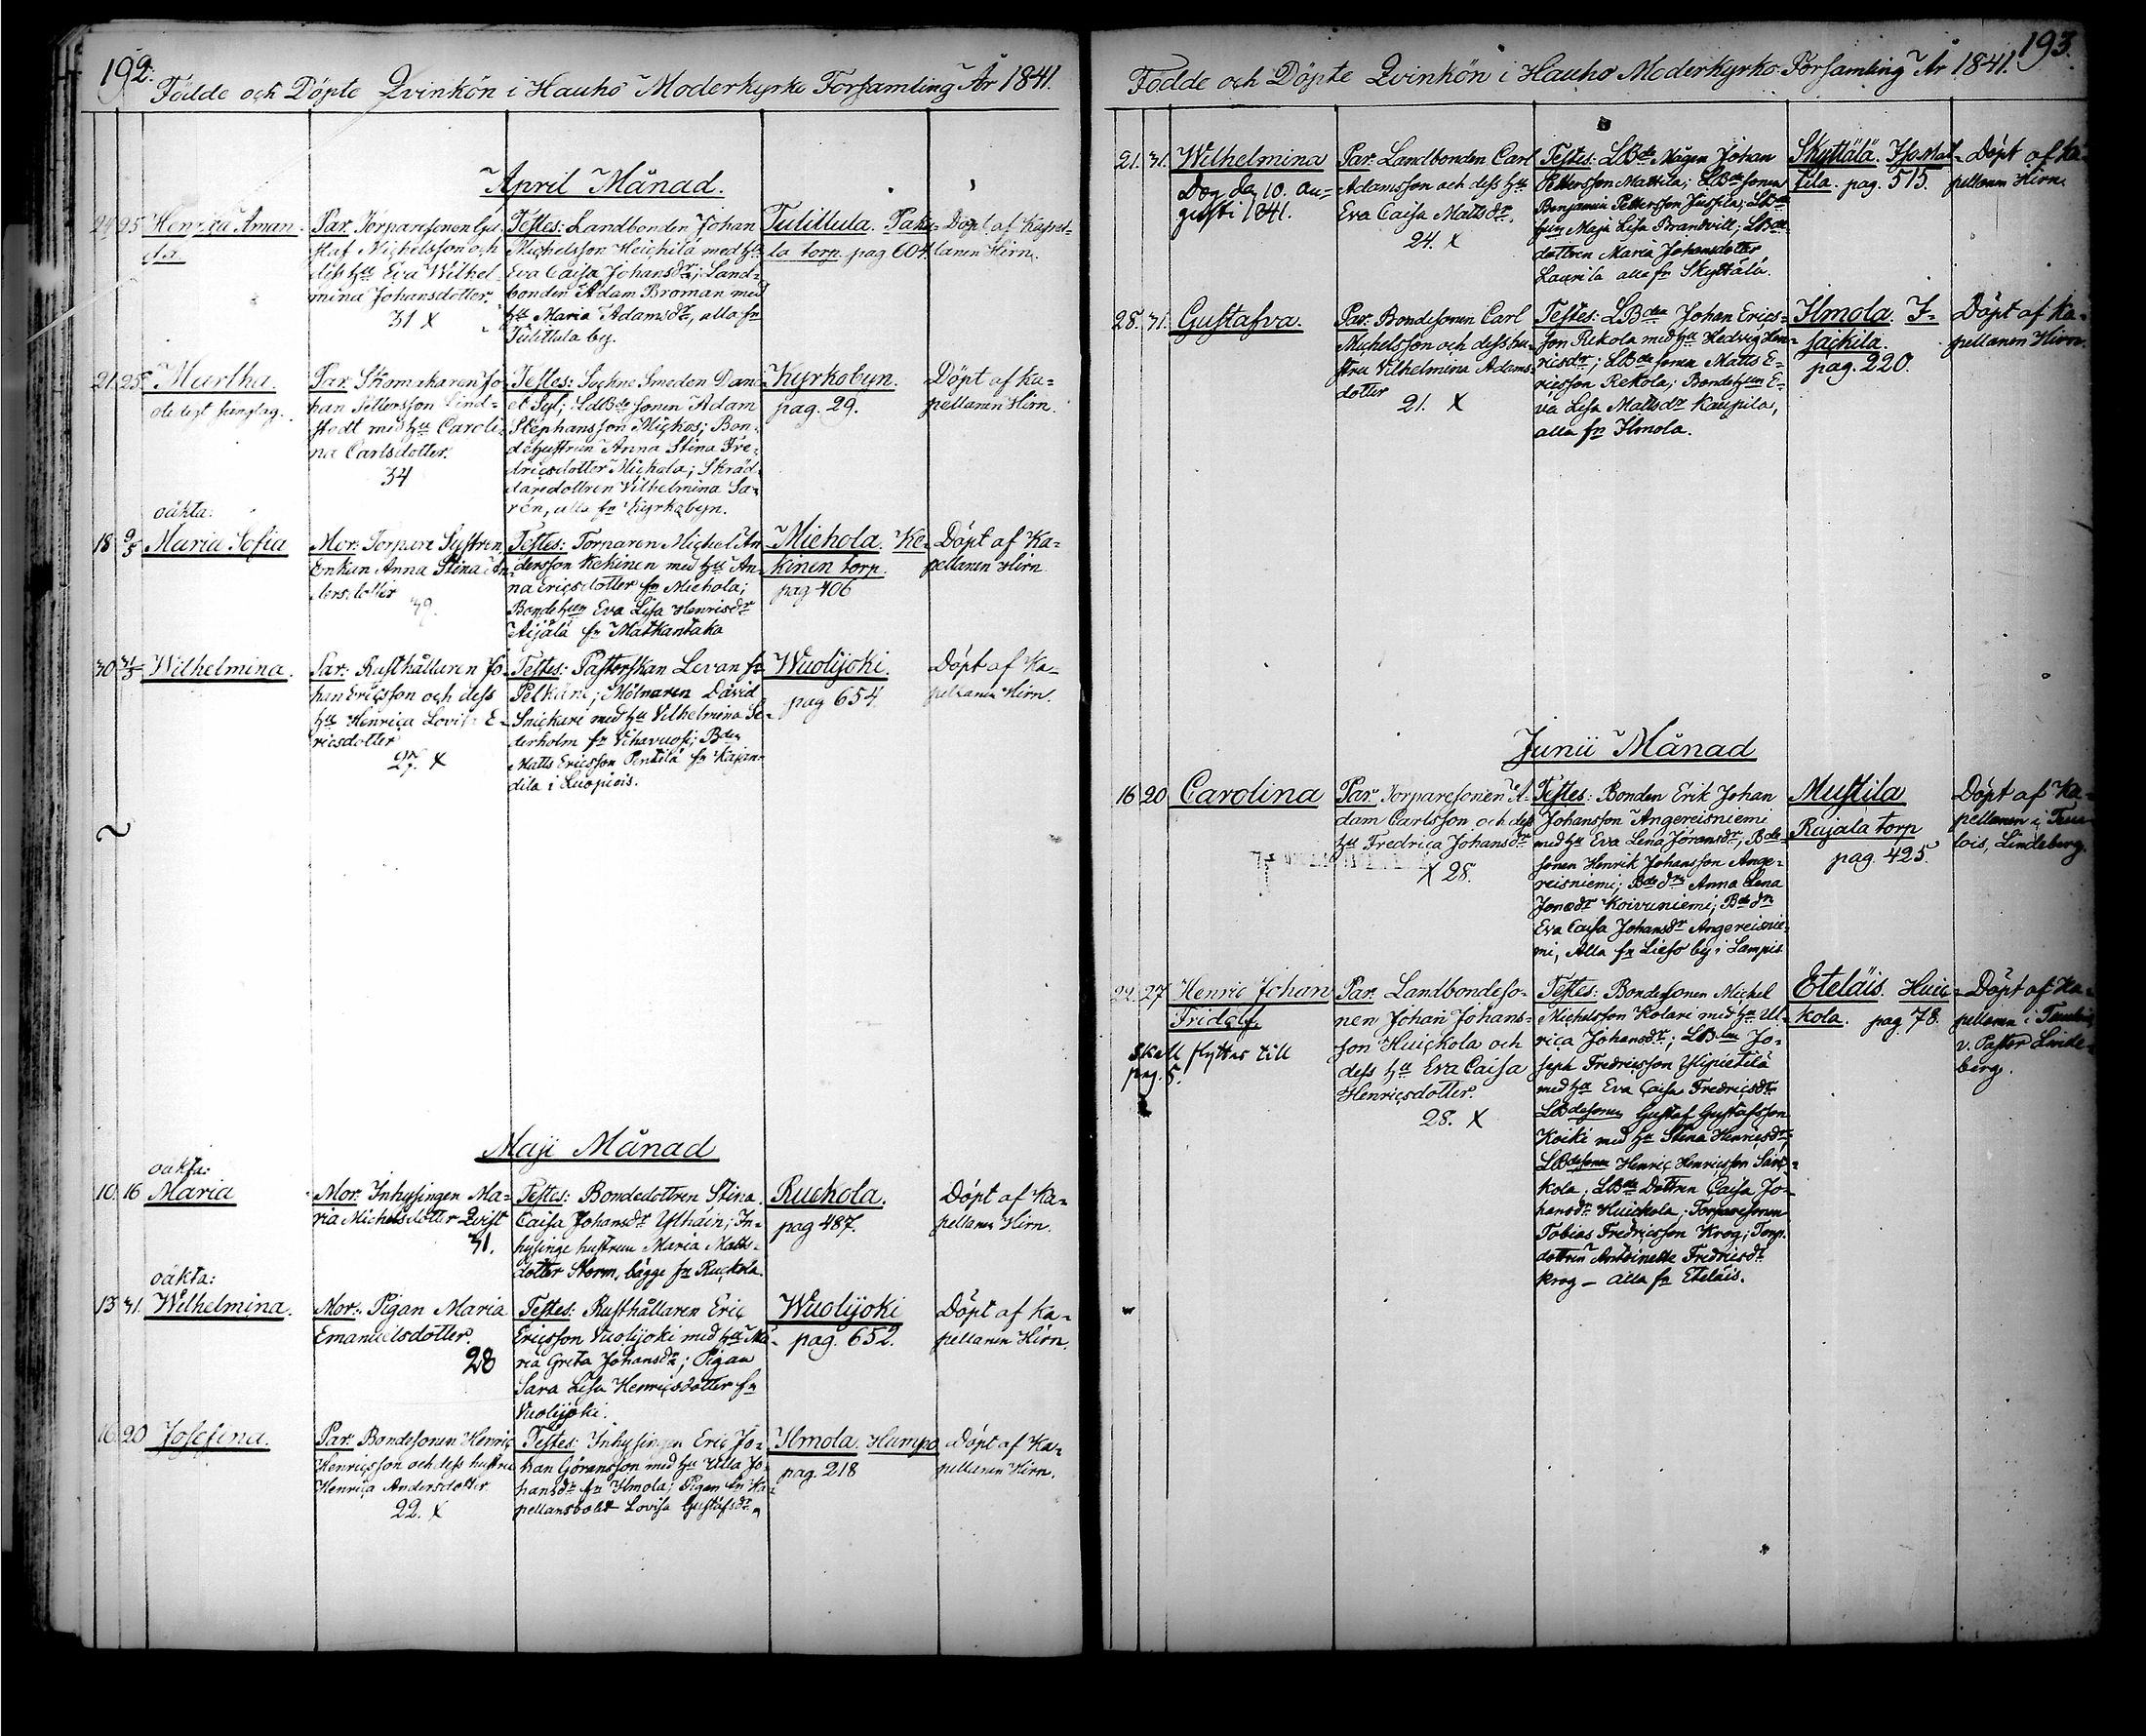 192.
Födde och Döpte Qvinkön i Hauho Moderkyrko Församling År 1841.
April Månad.
24 25 Henrica Aman-
da.
Par. Torparesonen Gu-
staf Michelsson och
dess hu Eva Wilhel-
mina Johansdotter.
31 X
Testes: Landbonden Johan
Michelsson Heickilä med hu
Eva Caisa Johansdr; Land-
bonden Adam Broman med
hu Maria Adamsdr, alla fr
Tulittula by.
Tulittula. Paku-
la torp. pag 604.
Döpt af Kapel-
lanen Hirn.
21. 25. Martha.
Par. Skomakaren Jo-
han Pettersson Lind-
stedt med hu Caroli-
na Carlsdotter.
34
Testes: Sockne Smeden Dani-
el Syl; LdBde sonen Adam
Stephansson Mickos; Bon-
dehustrun Anna Stina Fre-
dricsdotter Michola; Skräd-
daredottren Vilhelmina Sa-
rén, alla fr Kyrkobyn.
Kyrkobyn.
pag. 29.
Döpt af Ka-
pellanen Hirn.
oäkta:
18 9/5 Maria Sofia
Mor: Torpare Systren
Enkan Anna Stina An-
dersdotter
39.
Testes: Torparen Michel An-
dersson Kekinen med hu An-
na Ericsdotter fr Michola;
Bondehun Eva Lisa Henricsdr
Äijälä fr Matkantaka
Michola. Ke-
kinen torp.
pag 406
Döpt af Ka-
pellanen Hirn
30 31/5 Wilhelmina.
Par: Rusthållaren Jo-
han Ericsson och dess
hu Henrica Lovisa E-
ricsdotter
27. X
Testes: Pastorskan Levan fr
Pelkäne; Mölnaren David
Snickare med hu Vilhelmina Se-
derholm fr Vihavuosi; Bden
Matts Ericsson Pentilä fr Kajan-
dila i Luopiois.
Wuolijoki.
pag 654.
Döpt af Ka-
pellanen Hirn.
Maji Månad
oäkta:
10. 16 Maria
Mor: Inhysingen Ma-
ria Michelsdotter Qvist
31.
Testes: Bondedottren Stina
Caisa Johansdr Ylhäin; In-
hysinge hustrun Maria Matts-
dotter Storm, bägge fr Ruckola.
Ruckola.
pag 487.
Döpt af Ka-
pellanen Hirn.
oäkta:
13 31. Wilhelmina.
Mor: Pigan Maria
Emanuelsdotter.
28
Testes: Rusthållaren Eric
Ericsson Vuolijoki med hu Ma-
ria Greta Johansdr; Pigan
Sara Lisa Henricsdotter fr
Vuolijoki.
Wuolijoki
pag. 652.
Döpt af Ka-
pellanen Hirn.
16 20 Josefina.
Par: Bondesonen Henric
Henricsson och dess hustru
Henrica Andersdotter
22. X
Testes: Inhysingen Eric Jo-
han Göransson med hu Ulla Jo-
hansdr fr Ilmola; Pigan fr Ka-
pellansbolet Lovisa Gustafsdr
Ilmola. Humpo
pag. 218
Döpt af Ka-
pellanen Hirn.
193.
Födde och Döpte Qvinkön i Hauho Moderkyrko Församling År 1841.
21. 31. Wilhelmina
Dog den 10. Au-
gusti 1841.
Par. Landbonden Carl
Adamsson och dess hu
Eva Caisa Mattsdr.
24. X
Testes: LBde Mågen Johan
Pettersson Mattila; LBde sonen
Benjamin Pettersson Jussila; LBde
hun Maja Lisa Brandvill; LBde
dottren Maria Johansdotter
Laurila alla fr Skyttälä.
Skyttälä. Iso-Mat-
tila. pag. 515.
Döpt af Ka-
pellanen Hirn.
28. 31. Gustafva.
Par: Bondesonen Carl
Michelsson och dess hu-
stru Vilhelmina Adams-
dotter
21. X
Testes: LBden Johan Erics-
son Rekola med hu Hedvig Hen-
ricsdr; LBde sonen Matts E-
ricsson Rekola; Bondehun E-
va Lisa Mattsdr Kaupila,
alla fr Ilmola.
Ilmola. I-
säckilä.
pag. 220.
Döpt af Ka-
pellanen Hirn.
Junii Månad
16 20 Carolina
Par. Torparesonen A-
dam Carlsson och dess
hu Fredrica Johansdr
X 28.
Testes: Bonden Erik Johan
Johansson Angereisniemi
med hu Eva Lena Jöransdr; Bde
sonen Henrik Johansson Ange-
reisniemi; Bde dr Anna Lena
Jonasdr Koivuniemi; Bde dr
Eva Caisa Johansdr Angereisnie-
mi, Alla fr Lieso by i Lampis
Mustila
Rajala torp
pag. 425.
Döpt af Ka-
pellanen i Tuu-
lois, Lindeberg.
22. 27 Henric Johan
Fridolf.
Skall flyttas till
pag. 5.
Par. Landbondeso-
nen Johan Johans-
son Huickola och
dess hu Eva Caisa
Henricsdotter.
28. X
Testes: Bondesonen Michel
Michelsson Kolari med hu Ul-
rica Johansdr; LBden Jo-
seph Fredricsson Ylipietilä
med hu Eva Caisa Fredricsdr
LBdesonen Gustaf Gustafsson
Koiki med hu Stina Henricsdr;
LBdesonen Henric Henricsson Särc-
kola; LBde Dottren Caisa Jo-
hansdr Huickola; Torparesonen
Tobias Fredricsson Krog; Torp.
dottren Antoinette Fredricsdr
Krog - alla fr Eteläis.
Eteläis. Huic-
kola. pag. 78.
Döpt af Ka-
pellanen i Tuulois
v. Pastor Linde-
berg.